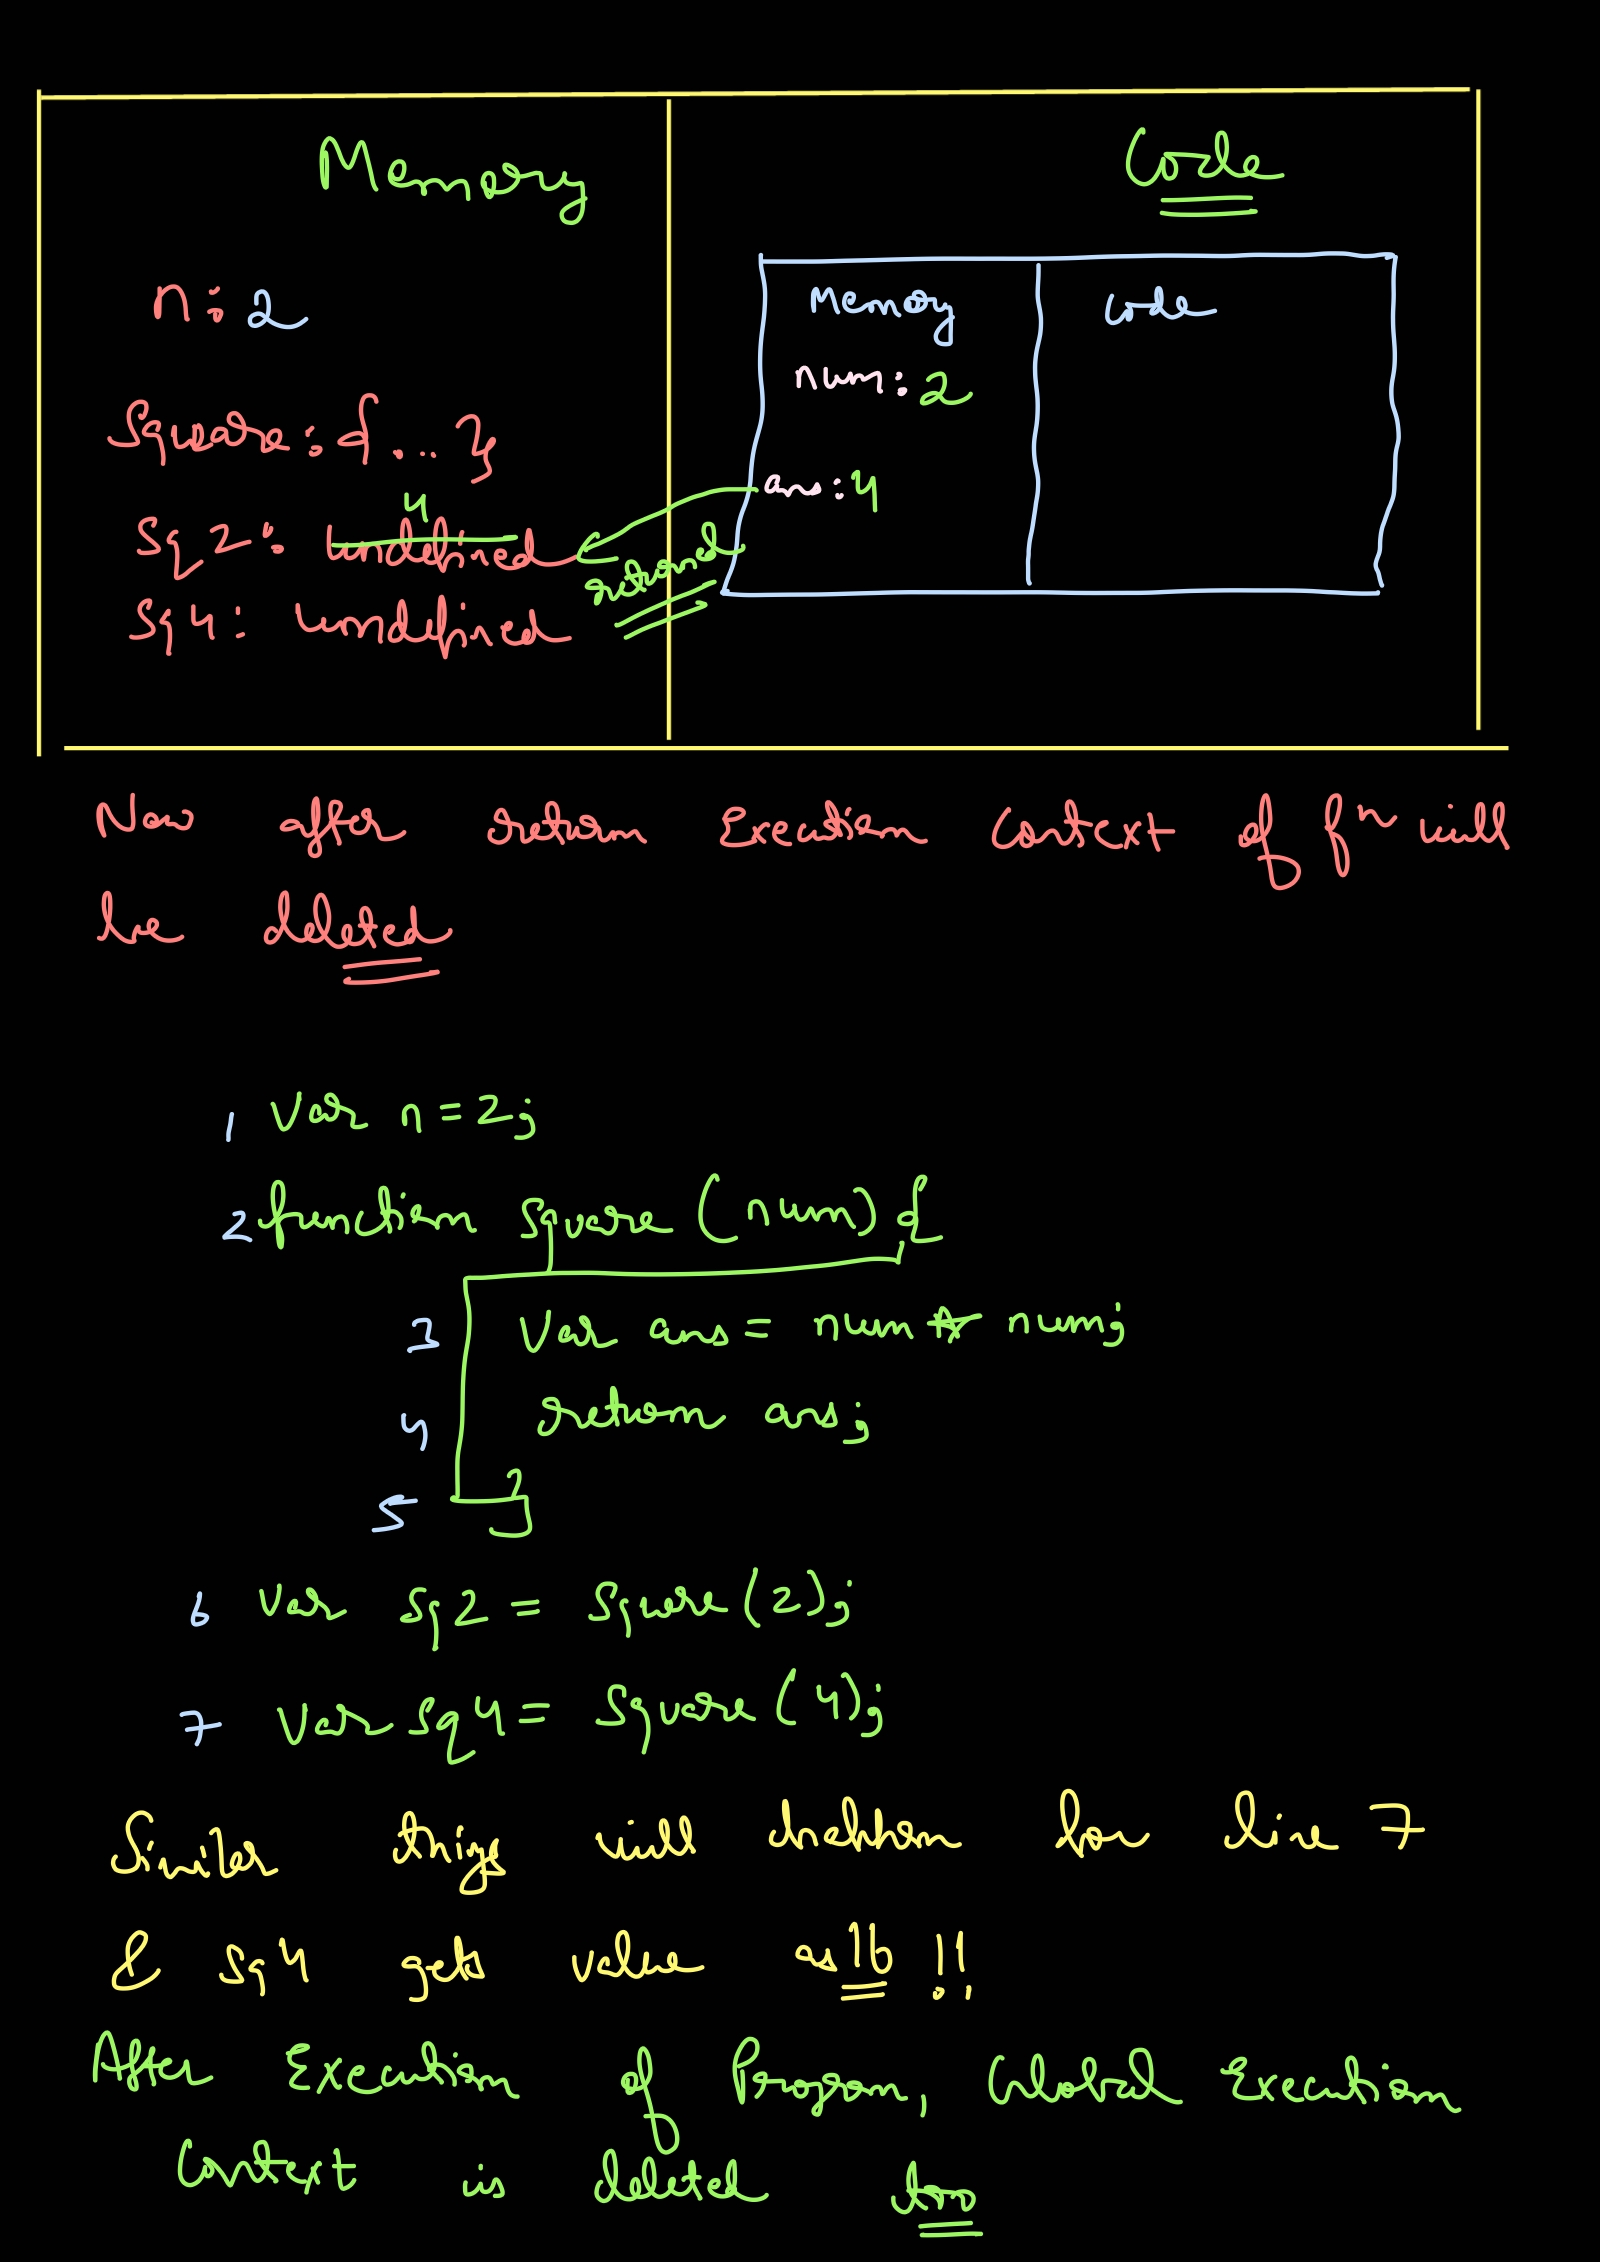 Memory
Code
n: 2
Square: {...}
4
Sq2: undefined
Sq4: undefined
returned
Memory
code
num: 2
ans: 4
Now after return Execution Context of fn will
be deleted
1 Var n = 2;
2 function square (num) {
3 Var ans = num * num;
4 return ans;
5 }
6 Var sq2 = Square(2);
7 Var sq4 = Square(4);
Similar things will happen for line 7
& sq4 gets value as 16 !!
After Execution of Program, Global Execution
Context is deleted too